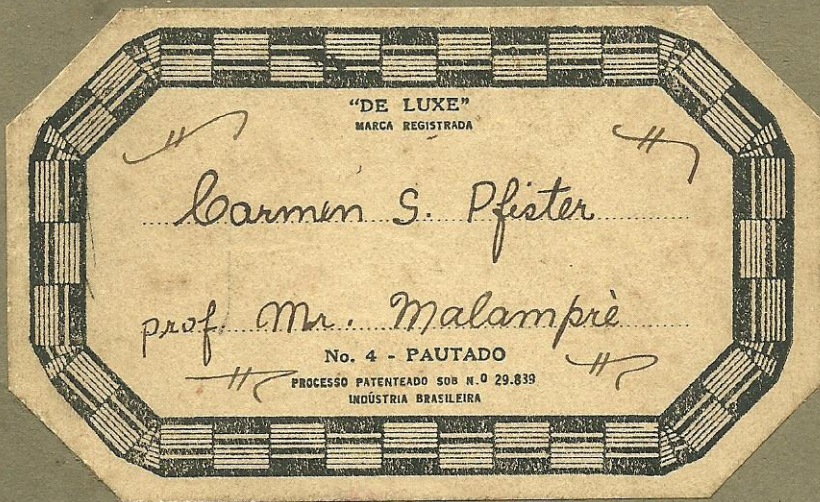 "DE LUXE"
MARCA REGISTRADA
Carmen S. Pfister
prof. Mr. Malamprè
No. 4 - PAUTADO
PROCESSO PATENTEADO SOB N.º 29.839
INDÚSTRIA BRASILEIRA